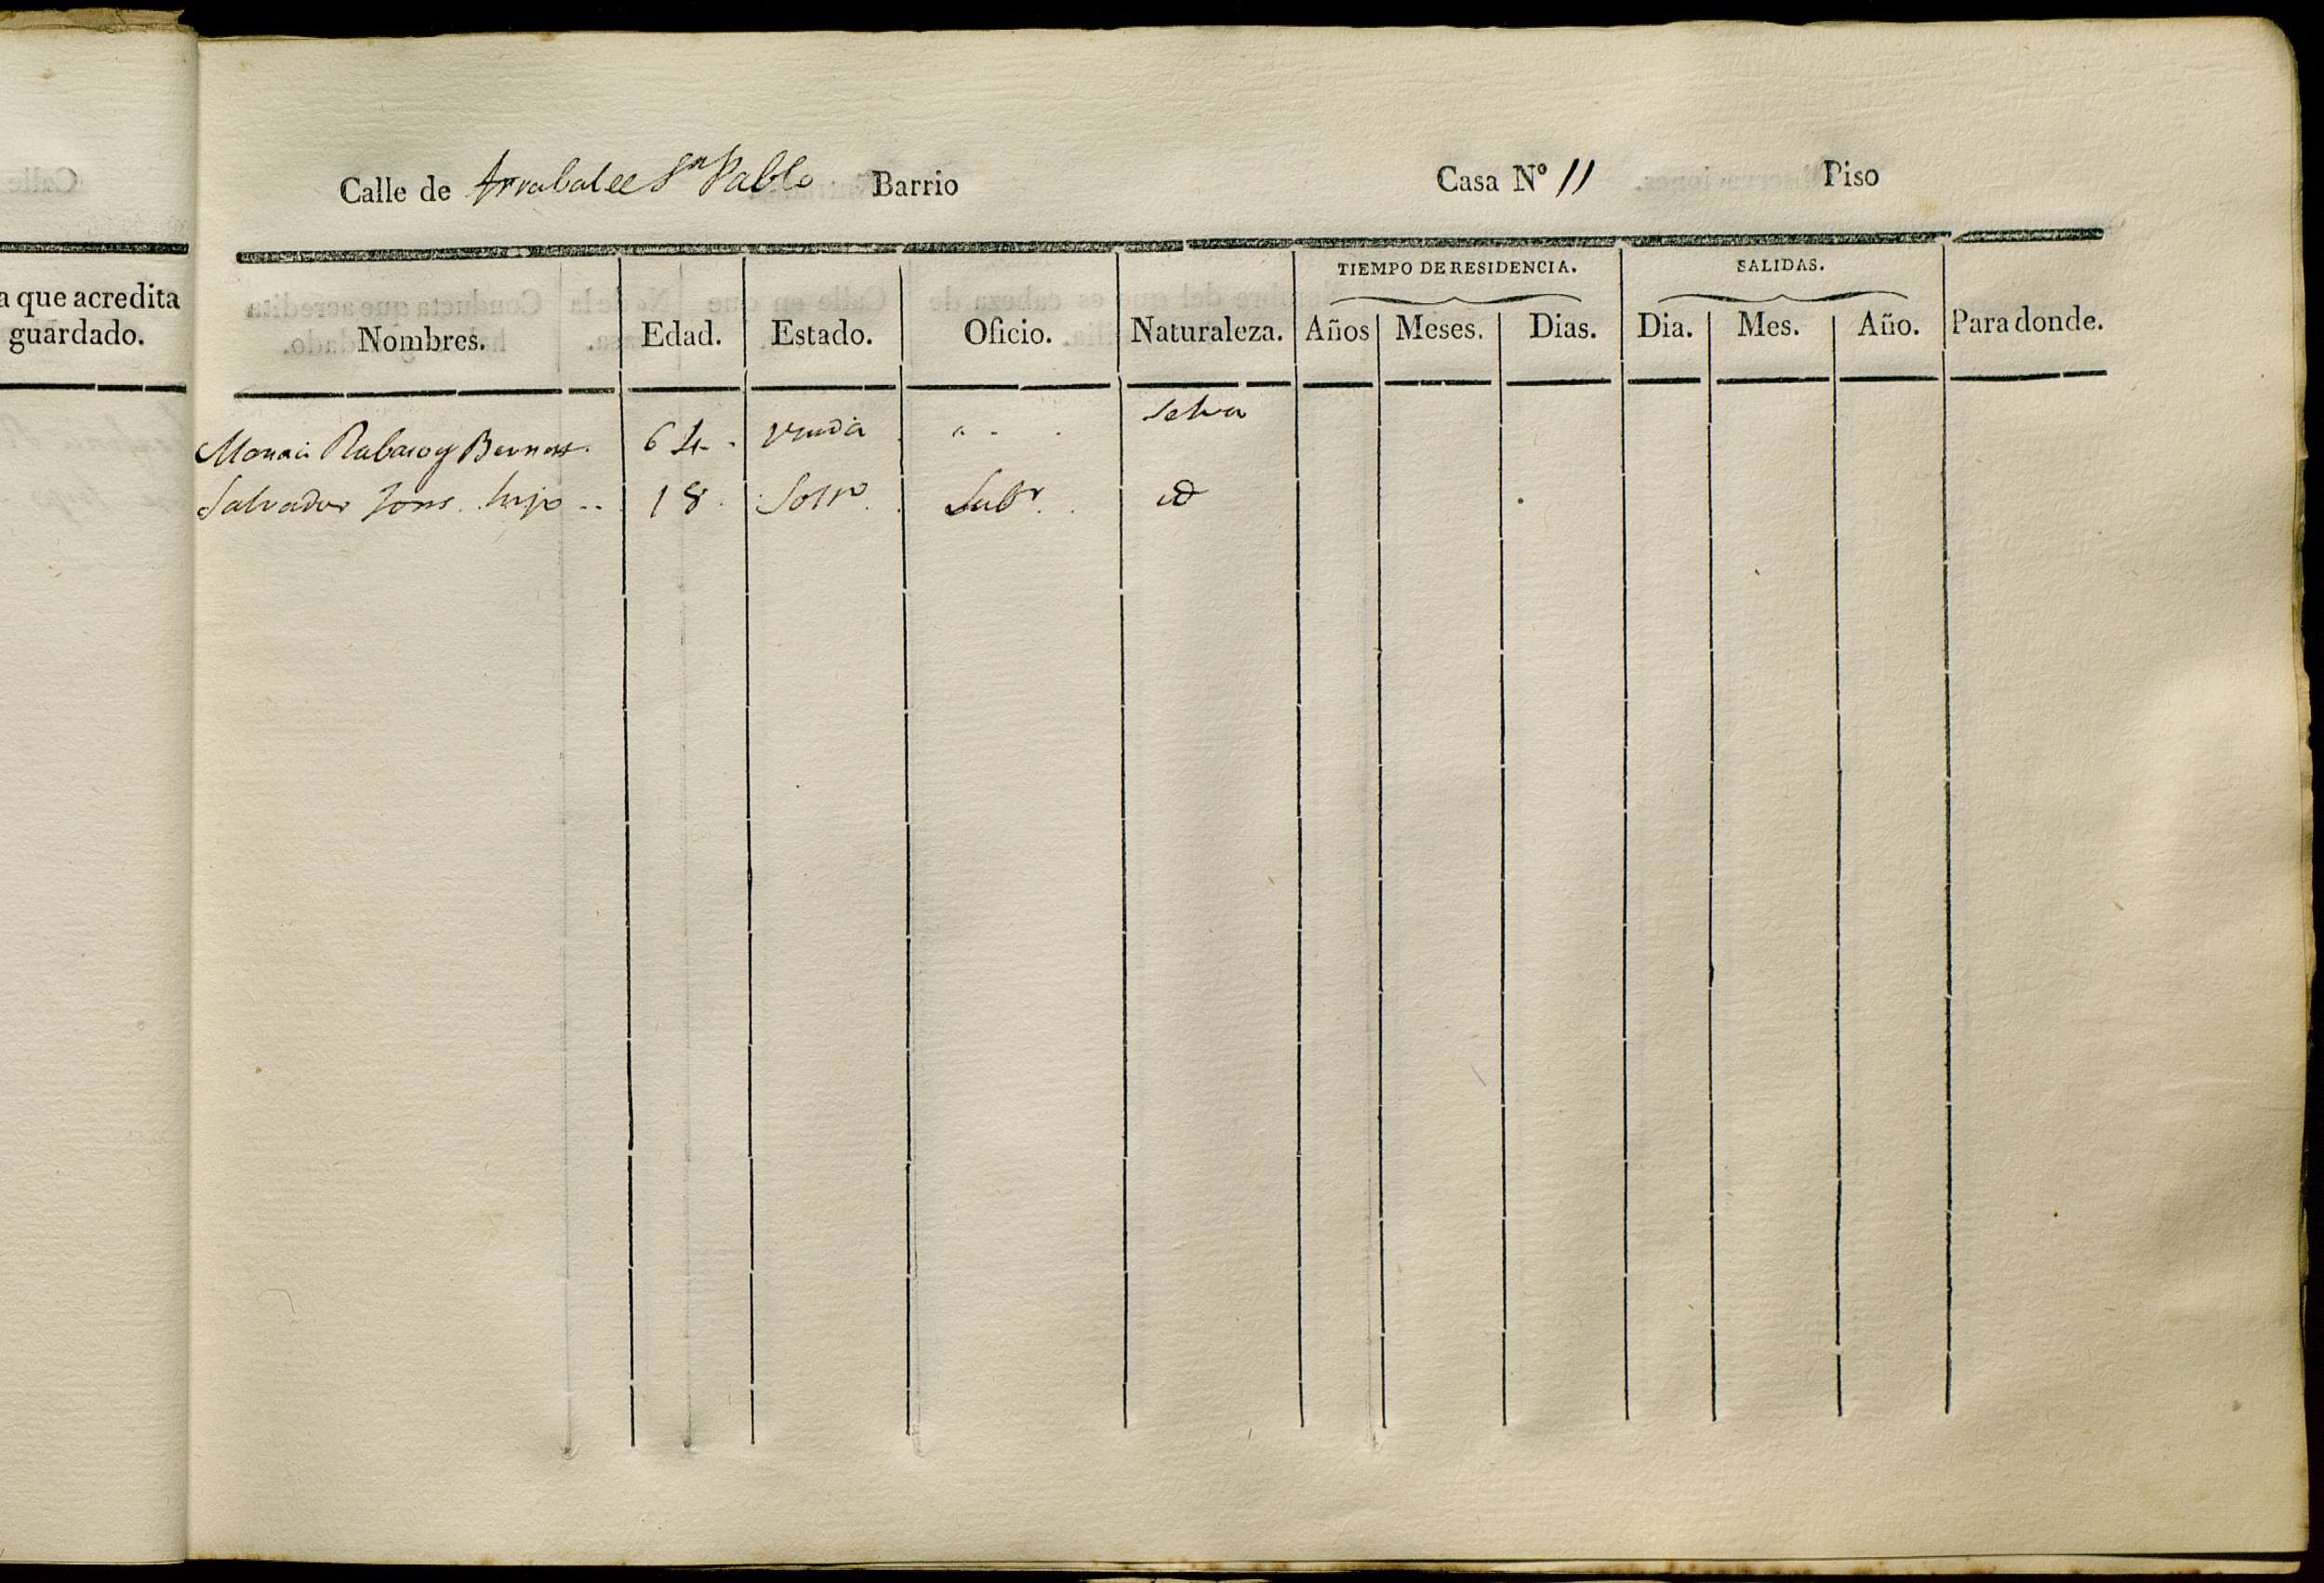 a que acredita
guardado.
Calle de Arrabal de Sn Pablo Barrio Casa Nº 11 Piso
TIEMPO DE RESIDENCIA. SALIDAS.
Nombres. Edad. Estado. Oficio. Naturaleza. Años Meses. Dias. Dia. Mes. Año. Para donde.
Maria 64. viuda " Selva
Salvador Fons hijo 18. Soltº Labr. id